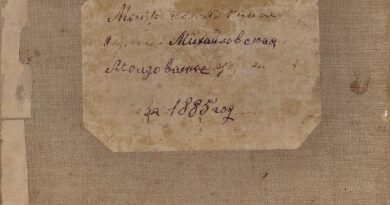 Метрическая книга
Михайловская
Молдованское
за 1885 год